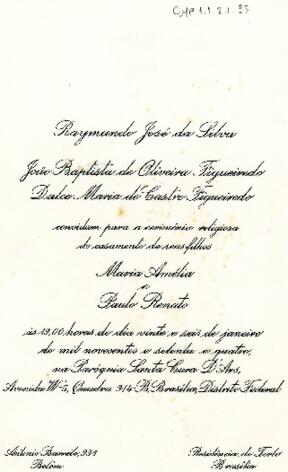 CMP 1.1.2.1.35
Raymundo José da Silva
João Baptista de Oliveira Figueiredo
Dulce Maria de Castro Figueiredo
convidam para a cerimônia religiosa
do casamento de seus filhos
Maria Amélia
e
Paulo Renato
às 19,00 horas do dia vinte e seis de janeiro
de mil novecentos e setenta e quatro,
na Paróquia Santo Cura D'Ars,
Avenida W-5, Quadra 914-Brasília, Distrito Federal
Antonio Barreto, 931
Residência do Torto
Belém
Brasília